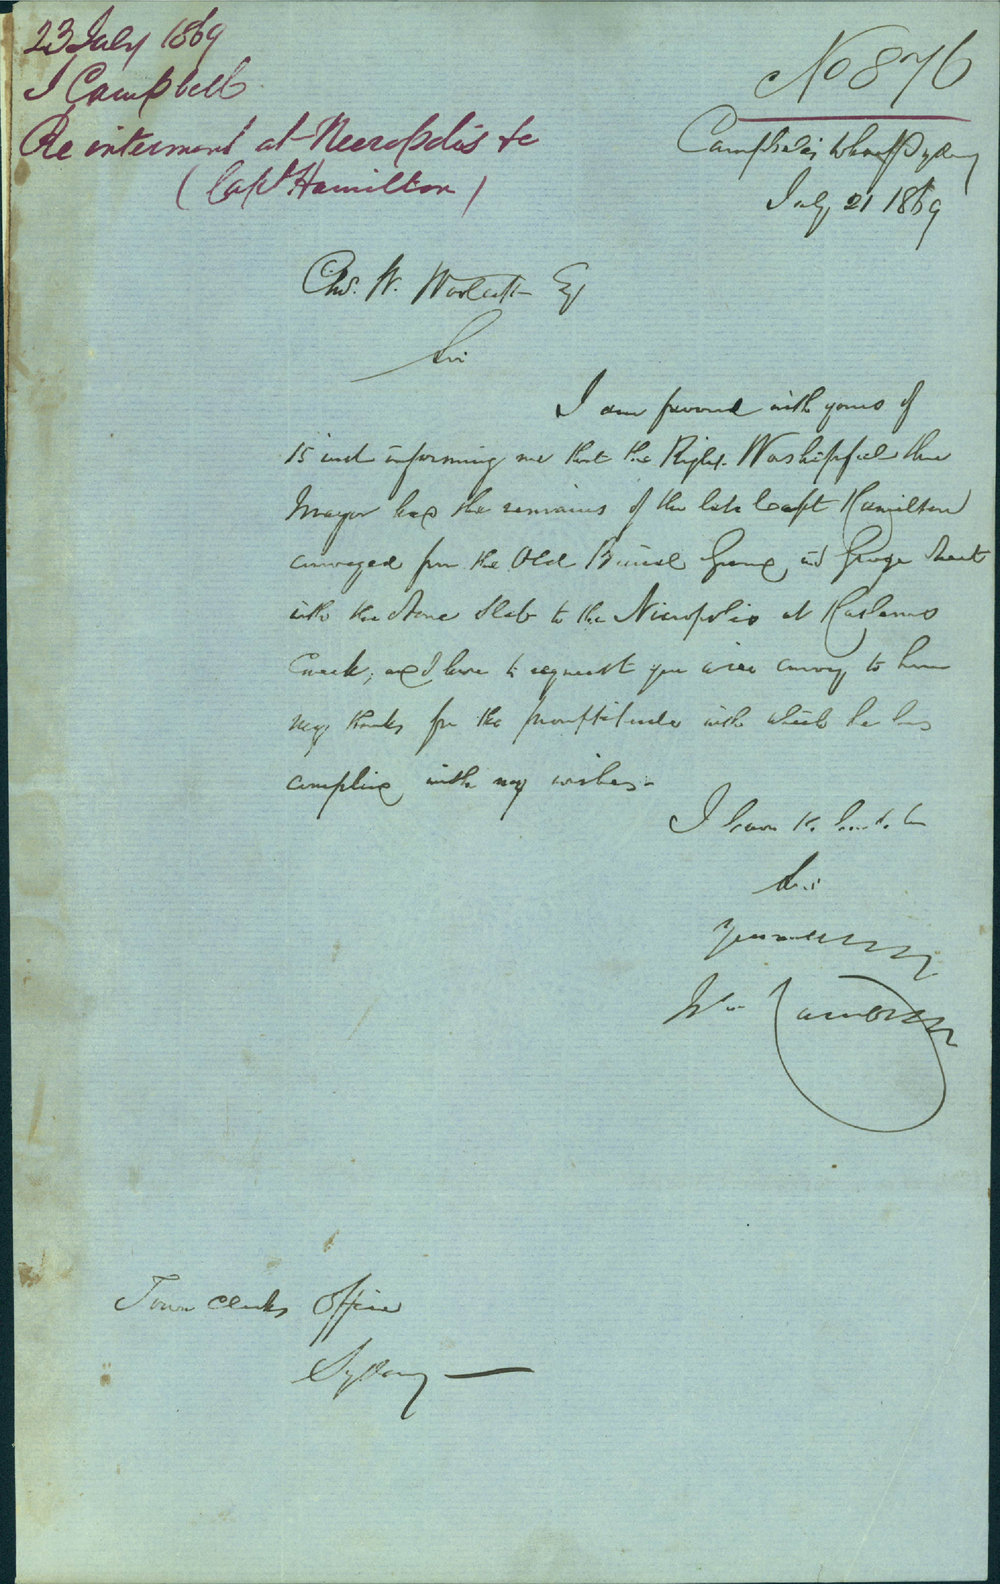 23 July 1869
J Campbell
Re interment at Necropolis &c
(Capt Hamilton)
No 876
Campbells Wharf Sydney
July 21 1869
Chs. H. Woolcott Esq
Sir
I am favored with yours of
15 inst informing me that the Right Worshipful the
Mayor had the remains of the late Capt Hamilton
conveyed from the Old Burial Ground in George Street
with the stone Slab to the Necropolis at Haslems
Creek, and I have to request you will convey to him
my thanks for the promptitude with which he has
complied with my wishes -
I have the honor to be
Sir
Your
Campbell
Town Clerks Office
Sydney —